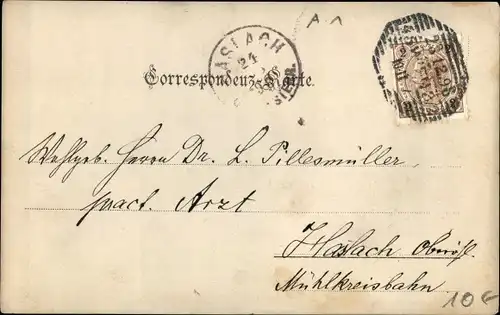 A A
HASLACH
24
Correspondenz-Karte.
Wohlgeb. Herrn Dr. L. Pillesmüller,
pract. Arzt
Haslach Oberöst.
Mühlkreisbahn
10 €